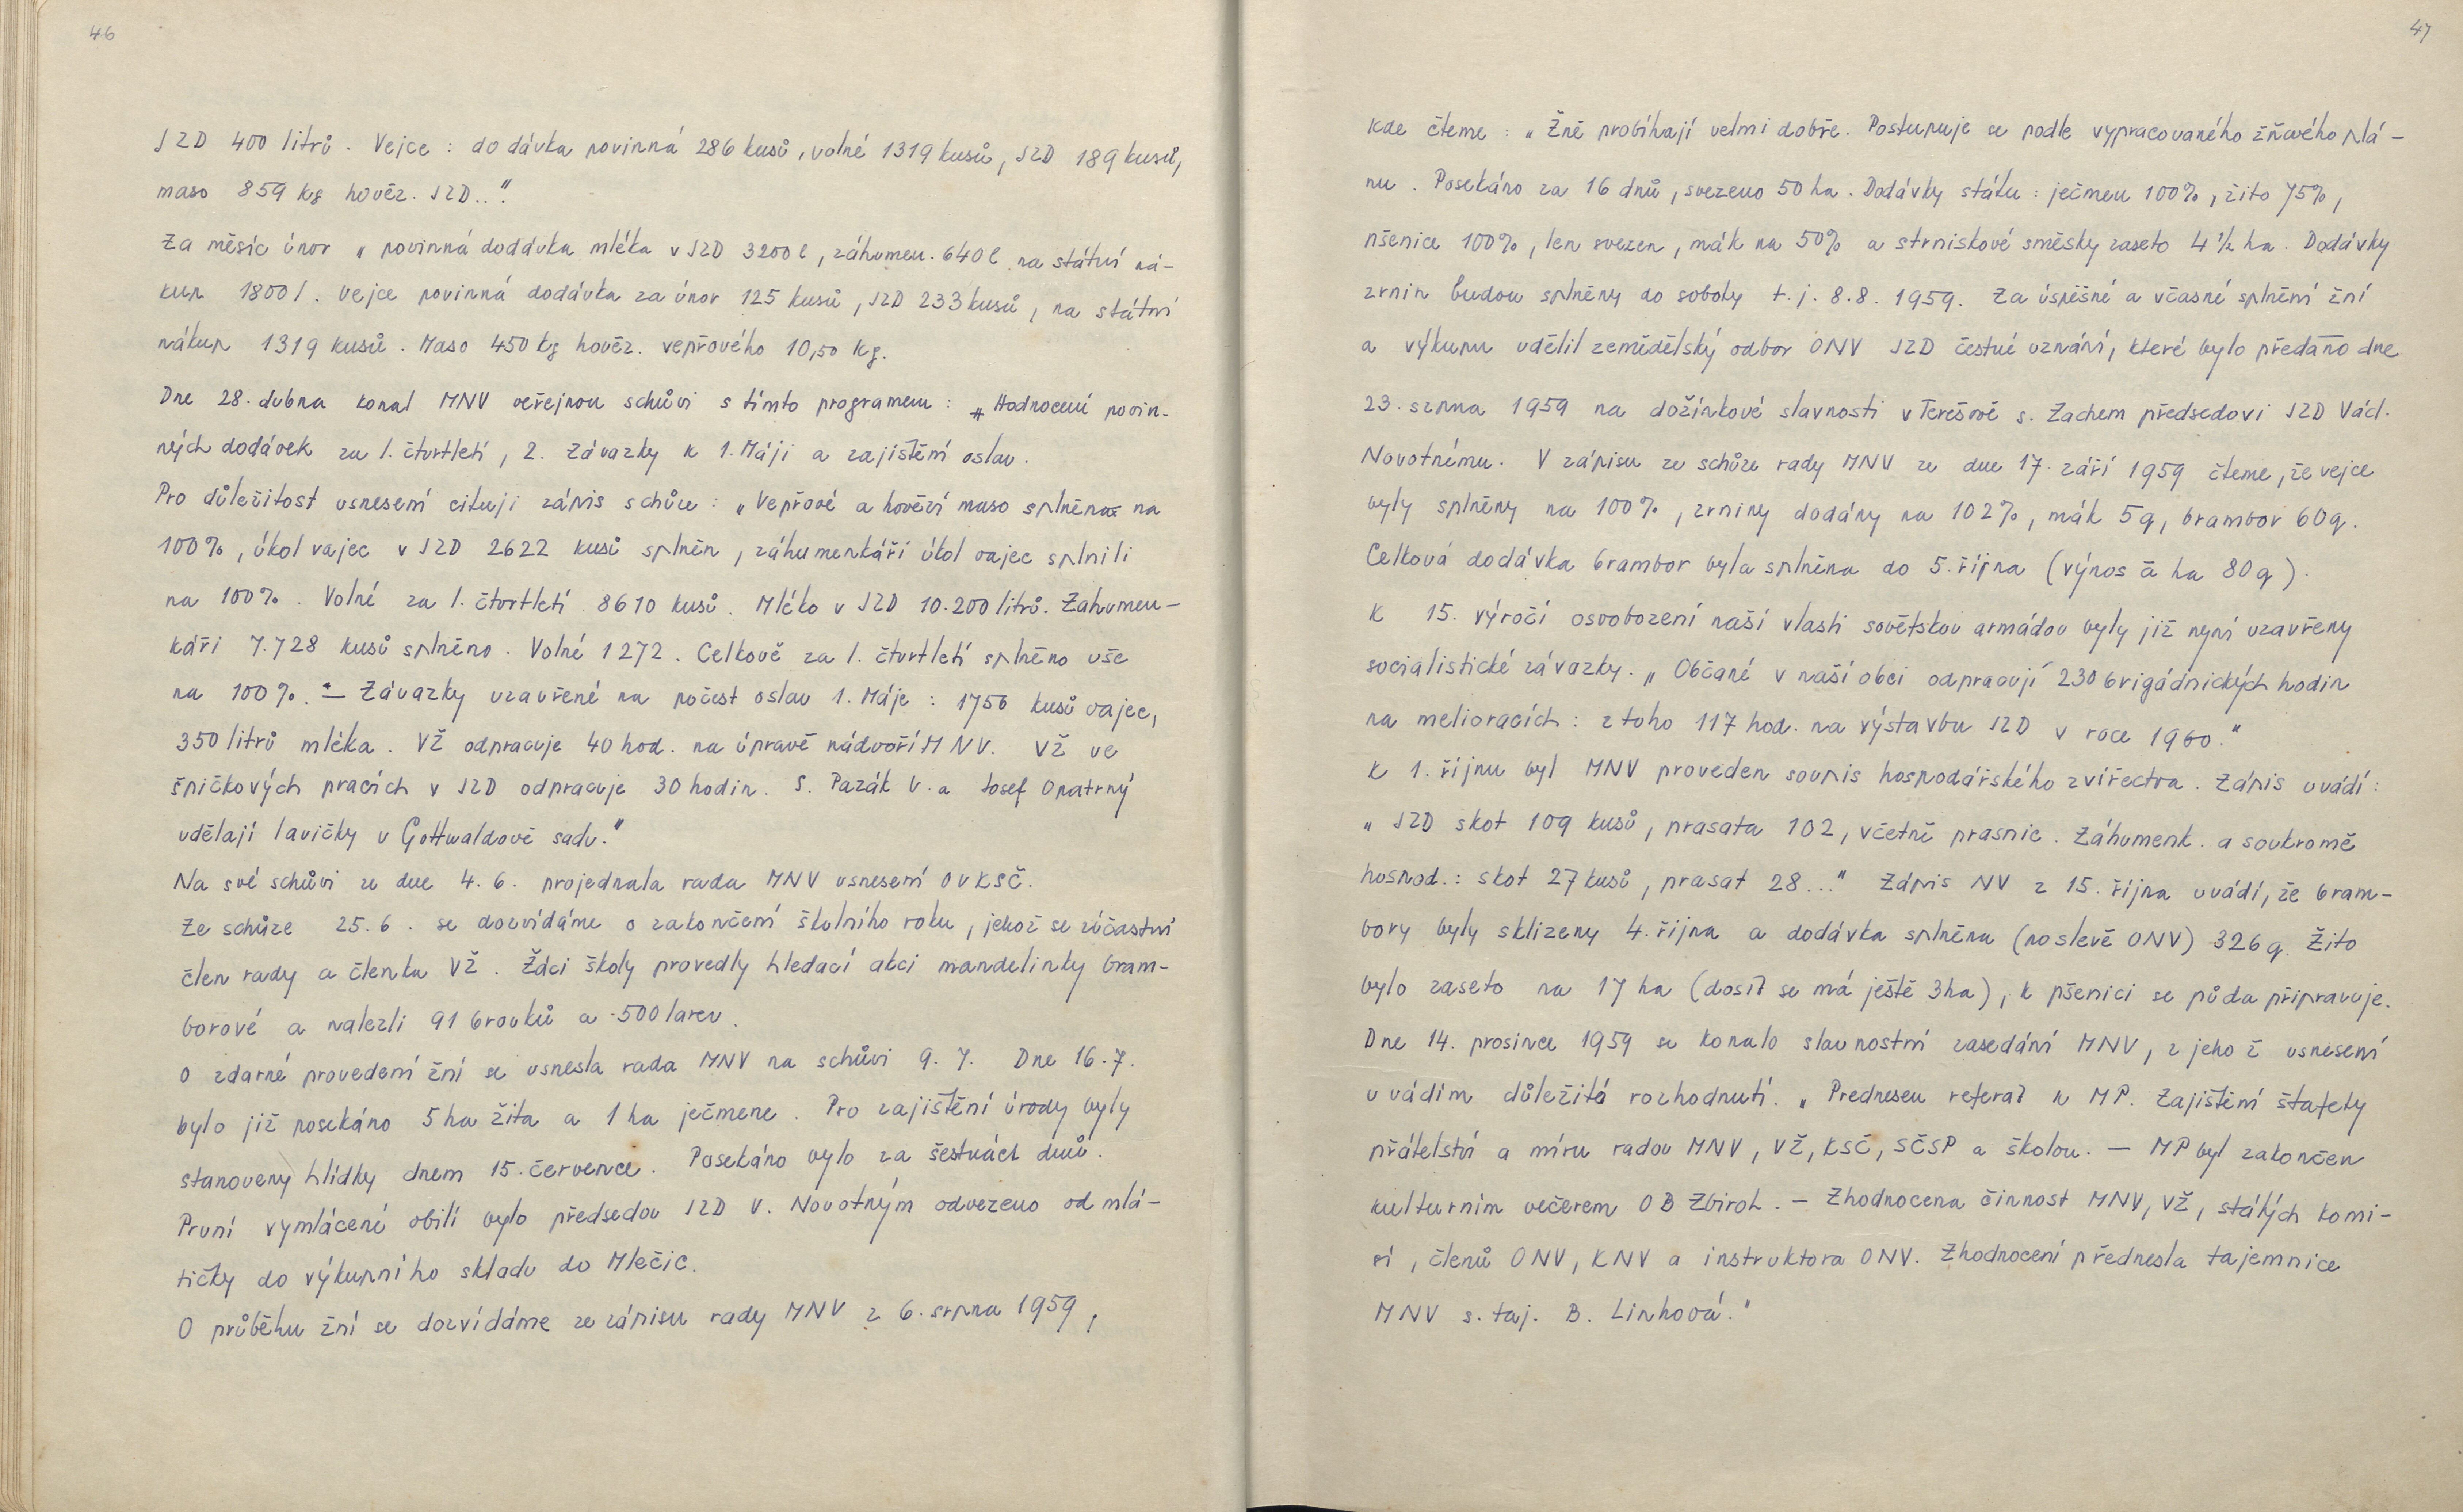 46
JZD 400 litrů. Vejce: dodávka povinná 286 kusů, volné 1319 kusů, JZD 189 kusů,
maso 859 kg hověz. JZD..."
Za měsíc únor „povinná dodávka mléka v JZD 3200 l, záhumen. 640 l na státní ná-
kup 1800 l. Vejce povinná dodávka za únor 125 kusů, JZD 233 kusů, na státní
nákup 1319 kusů. Maso 450 kg hověz. vepřového 10,50 kg.
Dne 28. dubna konal MNV veřejnou schůzi s tímto programem: Hodnocení povin-
ných dodávek za 1. čtvrtletí, 2. Závazky k 1. Máji a zajištění oslav.
Pro důležitost usnesení cituji zápis schůze: „Vepřové a hovězí maso splněno na
100%, úkol vajec v JZD 2622 kusů splněn, záhumenkáři úkol vajec splnili
na 100%. Volné za 1. čtvrtletí 8610 kusů. Mléko v JZD 10.200 litrů. Zahumen-
káři 7.728 kusů splněno. Volné 1272. Celkově za 1. čtvrtletí splněno vše
na 100%. — Závazky uzavřené na počest oslav 1. Máje: 1756 kusů vajec,
350 litrů mléka. VŽ odpracuje 40 hod. na úpravě nádvoří MNV. VŽ ve
špičkových pracích v JZD odpracuje 30 hodin. S. Pazák V. a Josef Opatrný
udělají lavičky v Gottwaldově sadu."
Na své schůzi ze dne 4.6. projednala rada MNV usnesení OV KSČ.
Ze schůze 25.6. se dozvídáme o zakončení školního roku, jehož se zúčastní
člen rady a členka VŽ. Žáci školy provedly hledací akci mandelinky bram-
borové a nalezli 91 brouků a 500 larev.
O zdárné provedení žní se usnesla rada MNV na schůzi 9.7. Dne 16.7.
bylo již posekáno 5 ha žita a 1 ha ječmene. Pro zajištění úrody byly
stanoveny hlídky dnem 15. července. Posekáno bylo za šestnáct dnů.
První vymlácené obilí bylo předsedou JZD V. Novotným odvezeno od mlá-
tičky do výkupního skladu do Mlečic.
O průběhu žní se dozvídáme ze zápisu rady MNV z 6. srpna 1959,
47
kde čteme: „Žně probíhají velmi dobře. Postupuje se podle vypracovaného žňového plá-
nu. Posekáno za 16 dnů, svezeno 50 ha. Dodávky státu: ječmen 100%, žito 75%,
pšenice 100%, len svezen, mák na 50% a strniskové směsky zaseto 4 1/2 ha. Dodávky
zrnin budou splněny do soboty t.j. 8.8. 1959. Za úspěšné a včasné splnění žní
a výkupu udělil zemědělský odbor ONV JZD čestné uznání, které bylo předáno dne
23. srpna 1959 na dožínkové slavnosti v Terešově s. Zachem předsedovi JZD Václ.
Novotnému. V zápisu ze schůze rady MNV ze dne 17. září 1959 čteme, že vejce
byly splněny na 100%, zrniny dodány na 102%, mák 5q, brambor 60q.
Celková dodávka brambor byla splněna do 5. října (výnos a ha 80q).
K 15. výročí osvobození naší vlasti sovětskou armádou byly již nyní uzavřeny
socialistické závazky. „Občané v naší obci odpracují 230 brigádnických hodin
na melioracích: z toho 117 hod. na výstavbu JZD v roce 1960."
K 1. říjnu byl MNV proveden soupis hospodářského zvířectva. Zápis uvádí:
„JZD skot 109 kusů, prasata 102, včetně prasnic. Záhumenk. a soukromě
hospod.: skot 27 kusů, prasat 28..." Zápis NV z 15. října uvádí, že bram-
bory byly sklizeny 4. října a dodávka splněna (po slevě ONV) 326q. Žito
bylo zaseto na 17 ha (dosít se má ještě 3ha), k pšenici se půda připravuje.
Dne 14. prosince 1959 se konalo slavnostní zasedání MNV, z jehož usnesení
uvádím důležitá rozhodnutí. „Prednesen referát k MP. Zajištění štafety
přátelství a míru radou MNV, VŽ, KSČ, SČSP a školou. — MP byl zakončen
kulturním večerem OB Zbiroh. — Zhodnocena činnost MNV, VŽ, stálých komi-
sí, členů ONV, KNV a instruktora ONV. Zhodnocení přednesla tajemnice
MNV s. taj. B. Linhová."